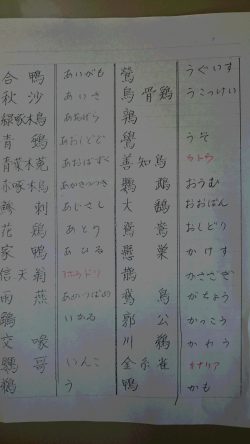 合鴨 あいがも
秋沙 あいさ
緑啄木鳥 あおげら
青鵐 あおしとど
青葉木菟 あおばずく
赤啄木鳥 あかげら
鯵刺 あじさし
花鶏 あとり
家鴨 あひる
信天翁 アホウドリ
雨燕 あまつばめ
鵤 いかる
交喙
鸚哥 いんこ
鵜 う
鶯 うぐいす
烏骨鶏 うこっけい
鷽 うそ
善知鳥 ウトウ
鸚鵡 おうむ
大鷭 おおばん
鴛鴦 おしどり
懸巣 かけす
鵲 かささぎ
鵞鳥 がちょう
郭公 かっこう
川鵜 かわう
金糸雀 カナリア
鴨 かも